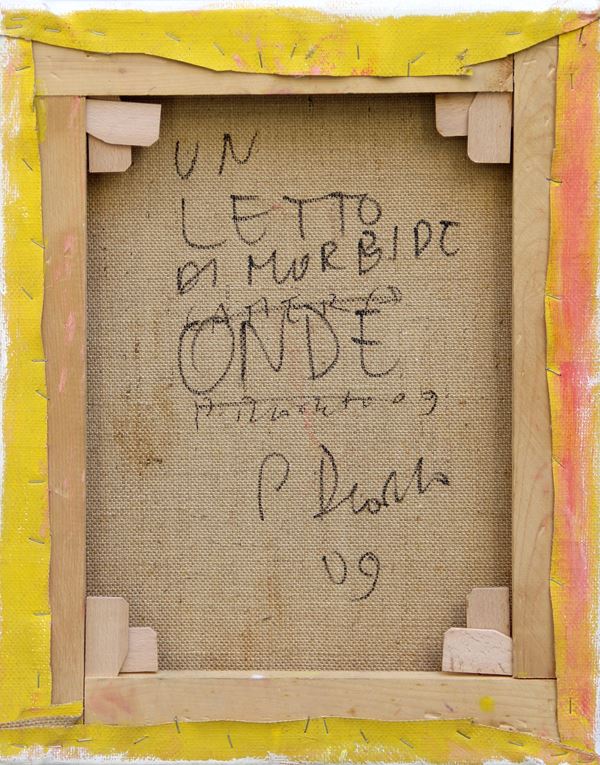 UN
LETTO
DI MORBIDE
ONDE
09
P
09